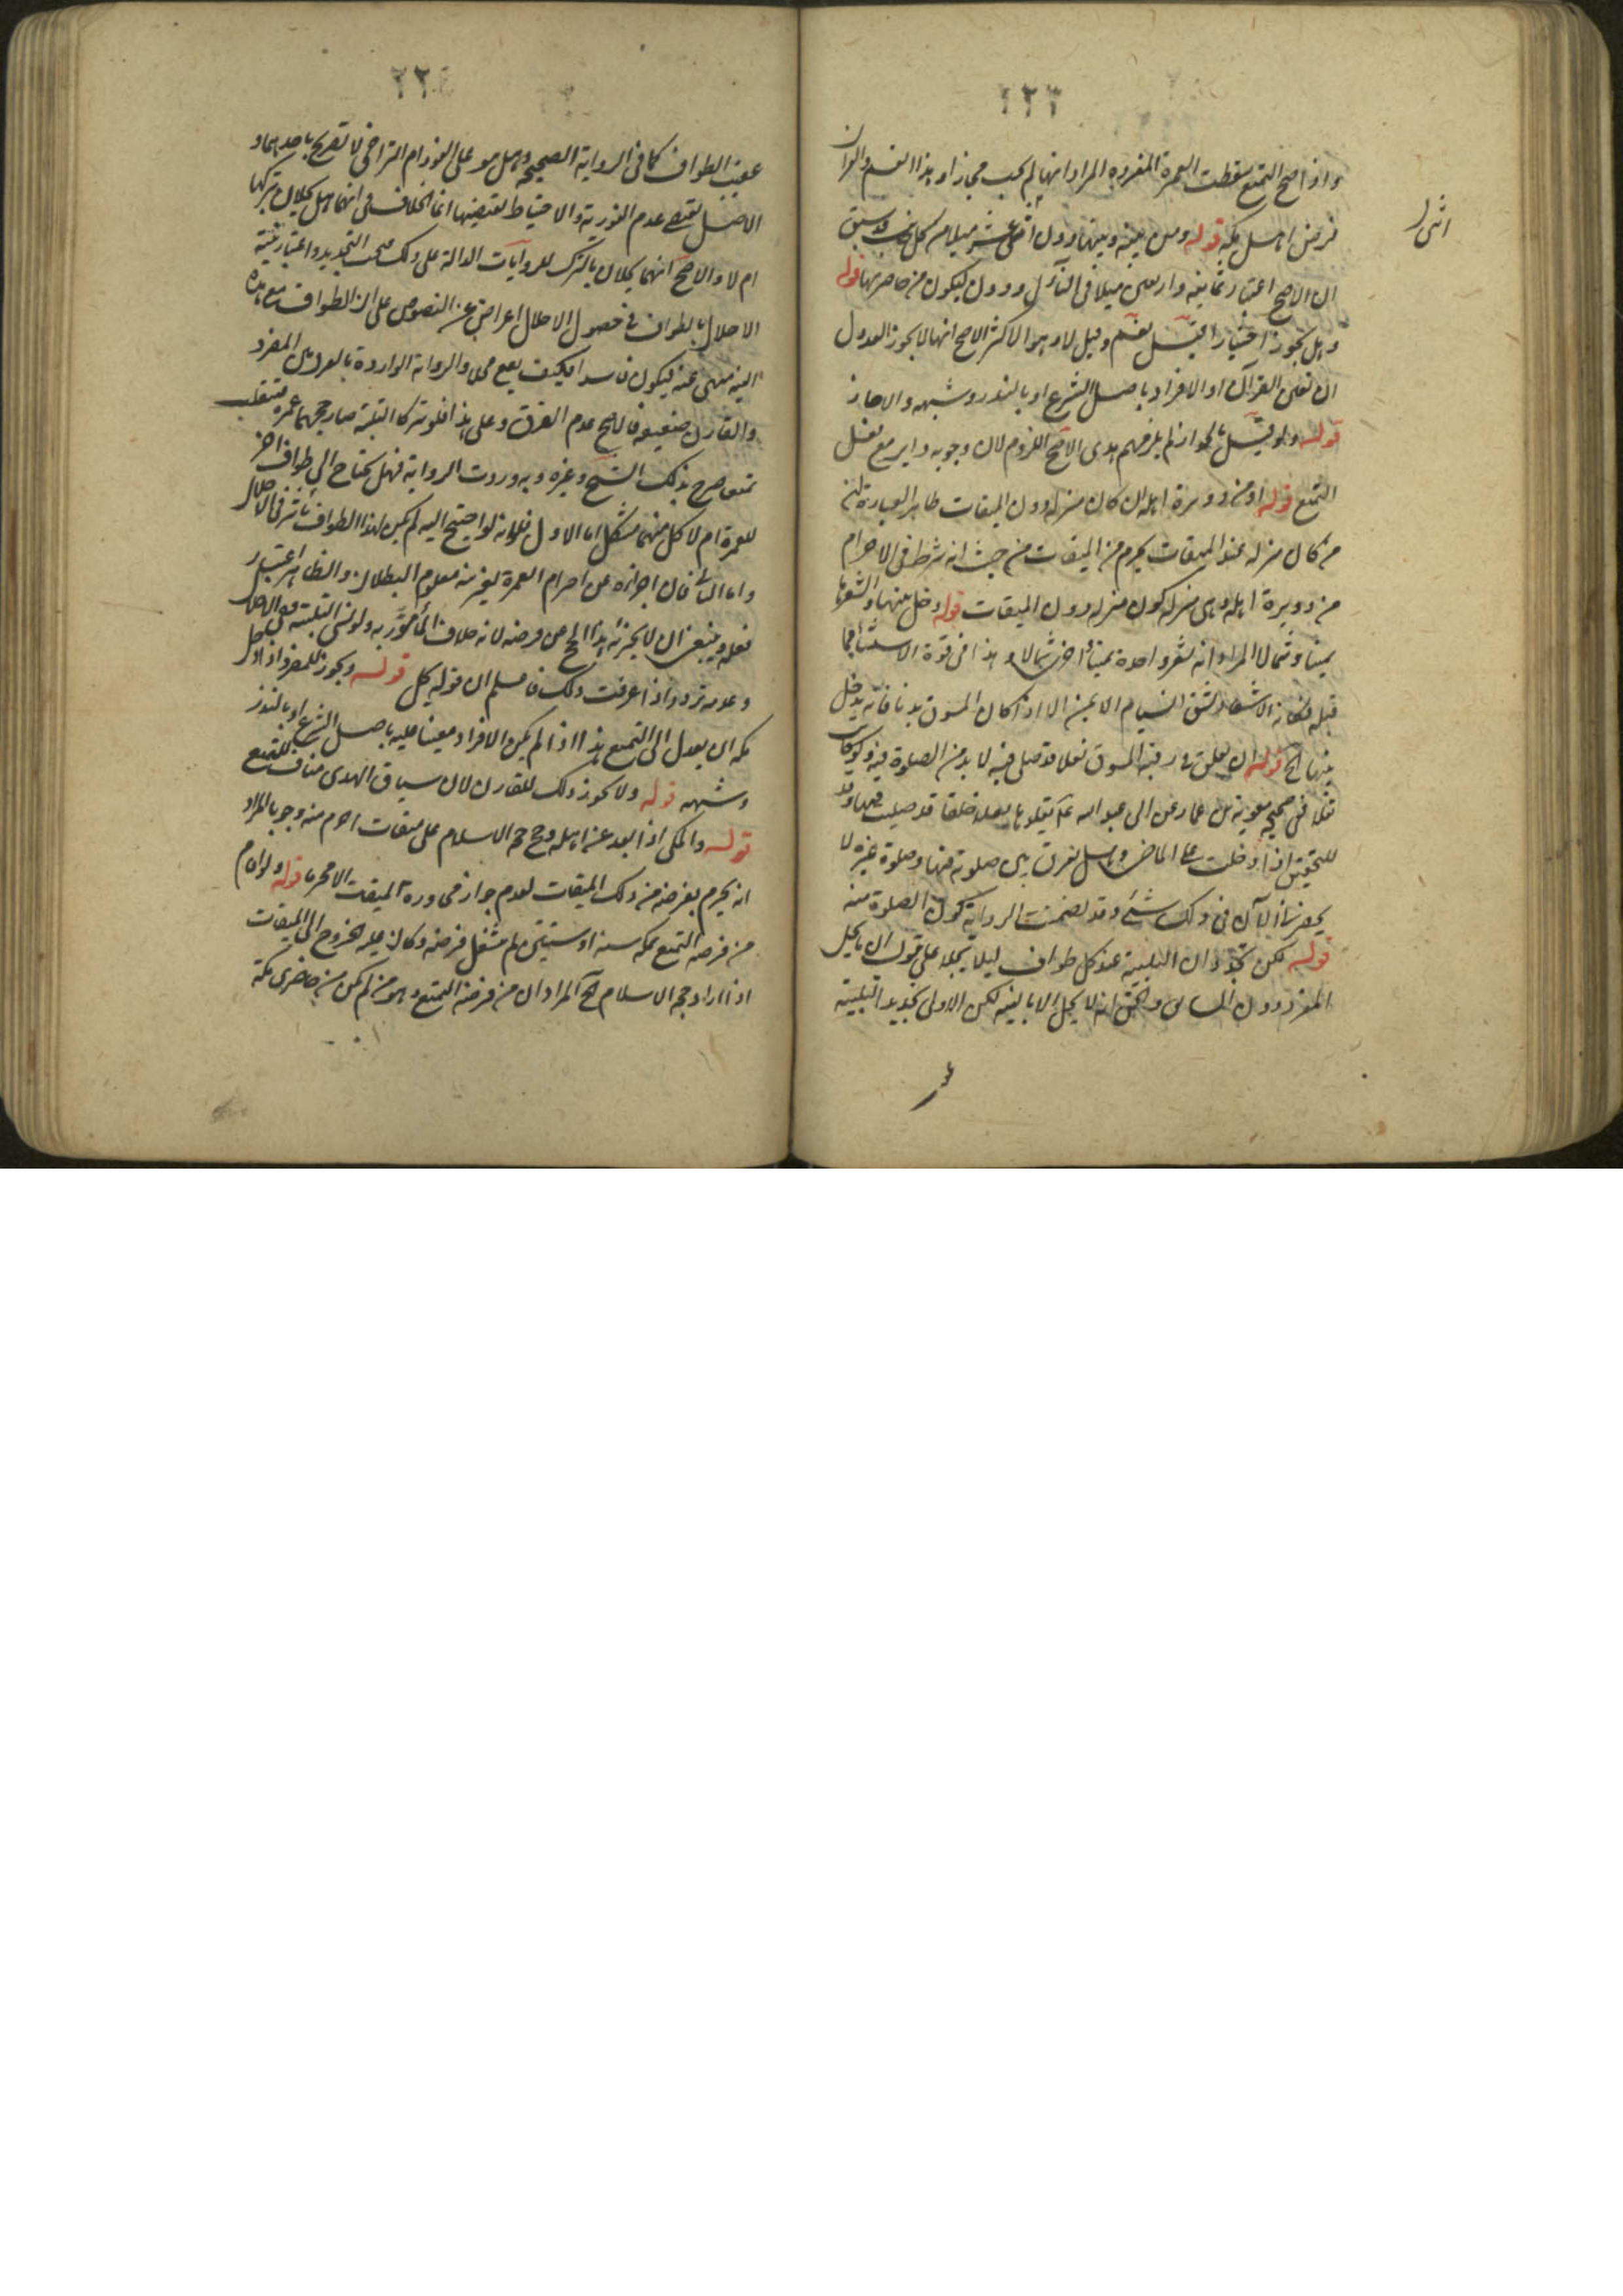 ٢٢٣
واذا صح التمتع سقطت العمرة المفردة المراد انها لم يجب حينئذ او هذا القسم والقران
فرض اهل مكة قوله ومن بينه وبينها دون اثنى عشر ميلا من كل جانب قد سبق
اثنى
ان الاصح اعتبار ثمانية واربعين ميلا في النازل ودون ليكون من حاضريها قوله
وهل يجوز اختيارا قيل نعم وقيل لا وهو الاكثر الاصح انها لا يجوز العدول
ان تعين القران او الافراد باصل الشرع او بالنذر وشبهه والا جاز
قوله ولو قيل بالجواز لم يلزمهم هدى الاصح اللزوم لان وجوبه داير مع فعل
التمتع قوله او من دويرة اهله ان كان منزله دون الميقات ظاهر العبارة ان
من كان منزله عند الميقات يحرم من الميقات من حيث انه شرط في الاحرام
من دويرة اهله وهى منزله كون منزله دون الميقات قوله دخل بينها واشعرها
يمينا وشمالا المراد انه يشعر واحدة يمينا واخرى شمالا وهذا في قوة الاستثنا مما
قبله فكانه الاشعار شق السنام الايمن الا اذا كان المسوق بدنا فانه يدخل
بينها الخ قوله ان يعلق في رقبة المسوق نعلا قد صلى فيه لا بد من الصلوة فيه
ففى صحيحة معوية بن عمار عن ابى عبد الله يقلدها بنعل خلقا قد صليت فيها وقد
للتحقيق اذا دخلت على الماضى وهل يفرق بين صلوته فيها وصلوة غيره لا
يحضرنا الآن في ذلك شئ وقد تضمنت الرواية كون الصلوة منه
قوله لكن يجددان التلبية عند كل طواف ليلا يحلا على قول ان يحل
المفرد دون السائق والحق انه لا يحل الا بالنية لكن الاولى تجديد التلبية
عقيب
٢٢٤
عقيب الطواف كما في الرواية الصحيحة وهل هو على الفور ام التراخى لا تصريح باحدهما و
الاصل يقتضى عدم الفورية والاحتياط يقتضيها انما الخلاف في انهما هل يحلان بتركها
ام لا والاصح انهما يحلان بالترك للروايات الدالة على ذلك فيجب التجديد واعتبار نية
الاحلال بالطواف في حصول الاحلال اعراض عن النصوص على ان الطواف مع هذه
النية منهى عنه فيكون فاسدا فكيف يقع محللا والرواية الواردة بالفرق بين المفرد
والقارن ضعيفة فالاصح عدم الفرق وعلى هذا فلو تركا التلبية صار حجهما عمرة فينقلب
تمتعا صرح بذلك الشيخ وغيره وبه وردت الرواية فهل يحتاج الى طواف اخر
للعمرة ام لا كل منهما مشكل اما الاول فلانه لو احتيج اليه لم يكن لهذا الطواف تأثير في الاحلال
واما الثانى فان اجزاءه عن احرام العمرة بغير نية معلوم البطلان والظاهر اعتبار
فعله وينبغى ان لا يجزئه هذا الحج عن فرضه لانه خلاف المأمور به ولو نسى التلبية ففى الاحلال
وعدمه تردد اذا عرفت ذلك فاعلم ان قوله يحل قوله ويجوز للمفرد اذا دخل
مكة ان يعدل الى التمتع هذا اذا لم يكن الافراد معينا عليه باصل الشرع او بالنذر
وشبهه قوله ولا يجوز ذلك للقارن لان سياق الهدى مناف للتمتع
قوله والمكى اذا بعد عن اهله وحج حجة الاسلام على ميقات احرم منه وجوبا المراد
انه يحرم بفرضه من ذلك الميقات لعدم جواز مجاوزة الميقات الا محرما قوله ولو اقام
من فرضه التمتع بمكة سنة او سنتين لم ينتقل فرضه وكان عليه الخروج الى الميقات
اذا اراد حجة الاسلام الخ المراد ان من فرضه التمتع وهو من لم يكن من حاضرى مكة